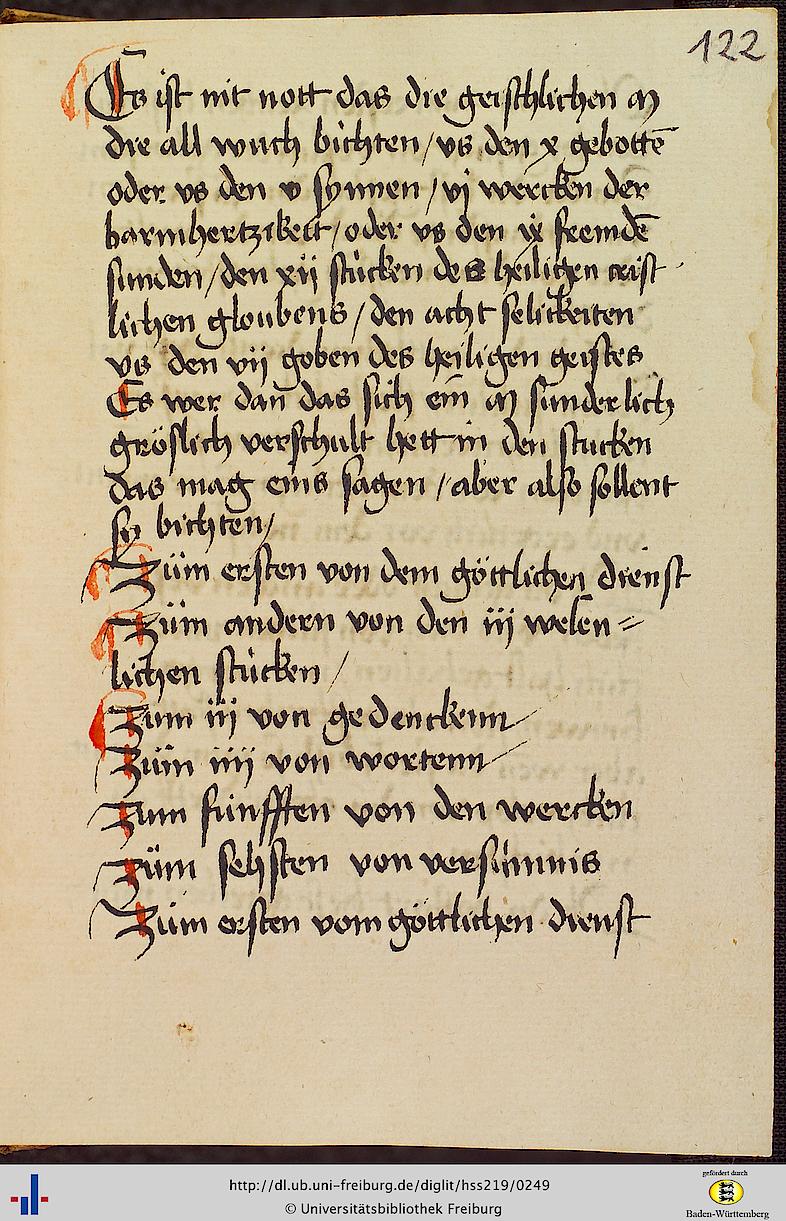 122
Es ist nit nott das die geischlichen m̄
die all wuch bichten / vs den x gebottē
oder vs den v synnen / vj wercken der
barmhertzikeit / oder vs den ix fremdē
sunden / den xij stúcken des heiligen crist
lichen gloubens / den acht selickeiten
vs den vij goben des heiligen geistes
Es wer dan das sich ein m̄ sunderlich
gröslich verschult hett in den stucken
das mag eins sagen / aber also sollent
sy bichten /
Züm ersten von dem göttlichen dienst
Züm andern von den iij wesen=
lichen stúcken /
Zum iij von gedenckenn
Züm iiij von wortenn
Zum fúnfften von den wercken
Züm sehsten von versúmnis
Züm ersten vom göttlichen dienst
http://dl.ub.uni-freiburg.de/diglit/hss219/0249
© Universitätsbibliothek Freiburg
gefördert durch
Baden-Württemberg